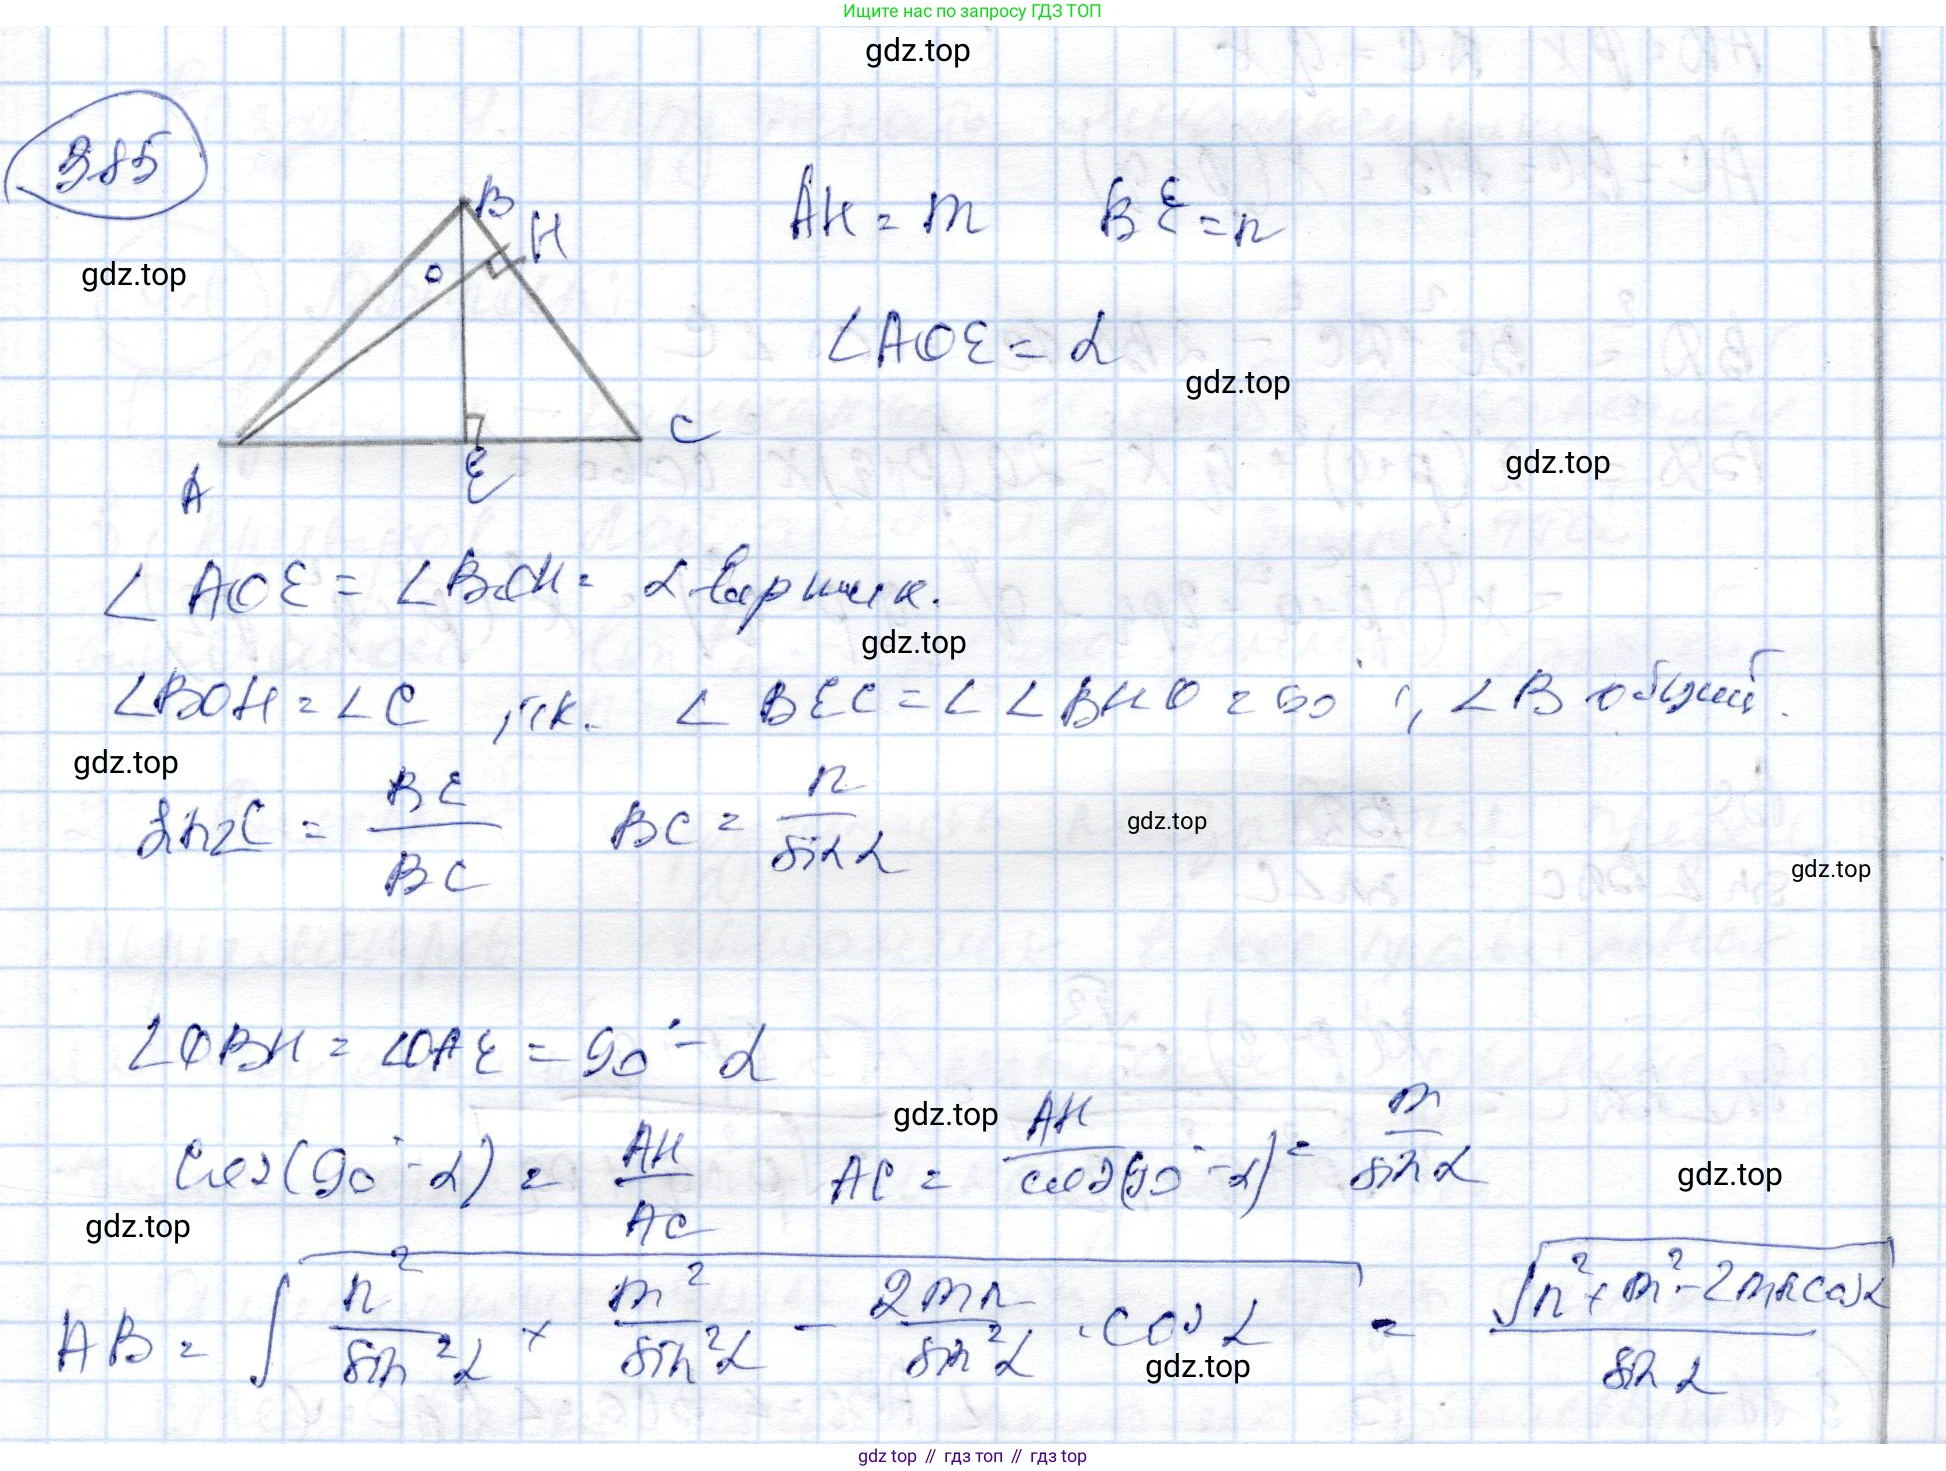 Ищите нас по запросу ГДЗ ТОП
gdz.top
385
B
H
O
A
E
C
AH = m BE = n
gdz.top
∠AOE = α
gdz.top
gdz.top
∠AOE = ∠BOH = α вертик.
gdz.top
∠BOH = ∠C, т.к. ∠BEC = ∠ ∠BHO = 90°, ∠B общий.
gdz.top
sin∠C = BE/BC BC = n/sin α
gdz.top
gdz.top
∠OBH = ∠OAE = 90° - α
gdz.top
cos(90° - α) = AH/AC AC = AH/cos(90° - α) = m/sin α
gdz.top
gdz.top
AB = √(n²/sin²α + m²/sin²α - 2mn/sin²α · cos α) = √(n² + m² - 2mn cos α)/sin α
gdz.top
gdz top // гдз топ // гдз top